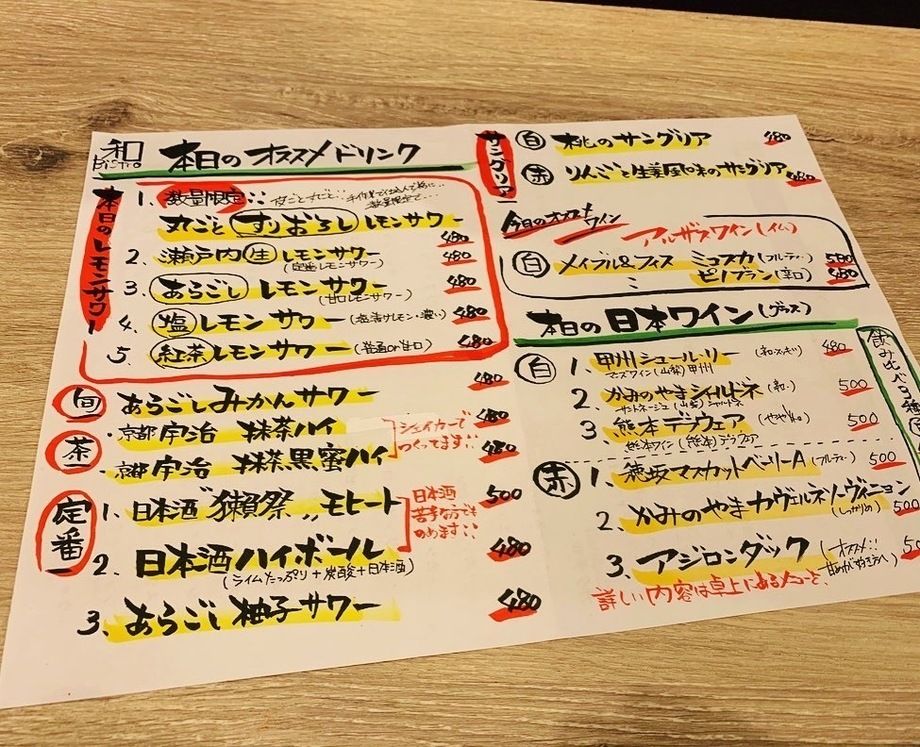 和
BISTRO
本日のオススメドリンク
本日のレモンサワー
1. 数量限定!!
皮ごとすりごと!! 手作業で仕込んだ為に…
数量限定で…
丸ごと すりおろし レモンサワー 480
2. 瀬戸内 生 レモンサワー 480
(定番レモンサワー)
3. あらごし レモンサワー 480
(甘口レモンサワー)
4. 塩 レモンサワー (塩漬けレモン・濃い) 480
5 紅茶 レモンサワー (普通or甘口) 480
旬 あらごしみかんサワー 480
茶
・京都 宇治 抹茶ハイ 480
・京都 宇治 抹茶黒蜜ハイ 480
シェイカーで
つくってます!!
定番
1. 日本酒"獺祭〃モヒート 500
日本酒
苦手な方でも
のめます!!
2. 日本酒ハイボール 480
(ライムたっぷり+炭酸+日本酒)
3. あらごし柚子サワー 480
サングリア
白 桃のサングリア 480
赤 りんごと生姜風味のサングリア 480
今日のオススメワイン
アルザスワイン(イム)
白 メイブル&フィス ミュスカ (フルーティー) 580
〃 ピノブラン (辛口) 480
本日の日本ワイン (グラス)
飲み比べ3種
白
1. 甲州シュール・リー 480
マズワイン (山梨) 甲州
2. かみのやまシャルドネ 500
シャルドネ
3. 熊本デラウェア 500
熊本ワイン (熊本) デラウェア
赤
1. 穂坂マスカットベーリーA (フルーティー) 500
2. かみのやまカヴェルネソーヴィニョン
(しっかりめ) 500
3. アジロンダック (オススメ!!
甘めが好き方へ)
詳しい内容は卓上にあるメニューを、